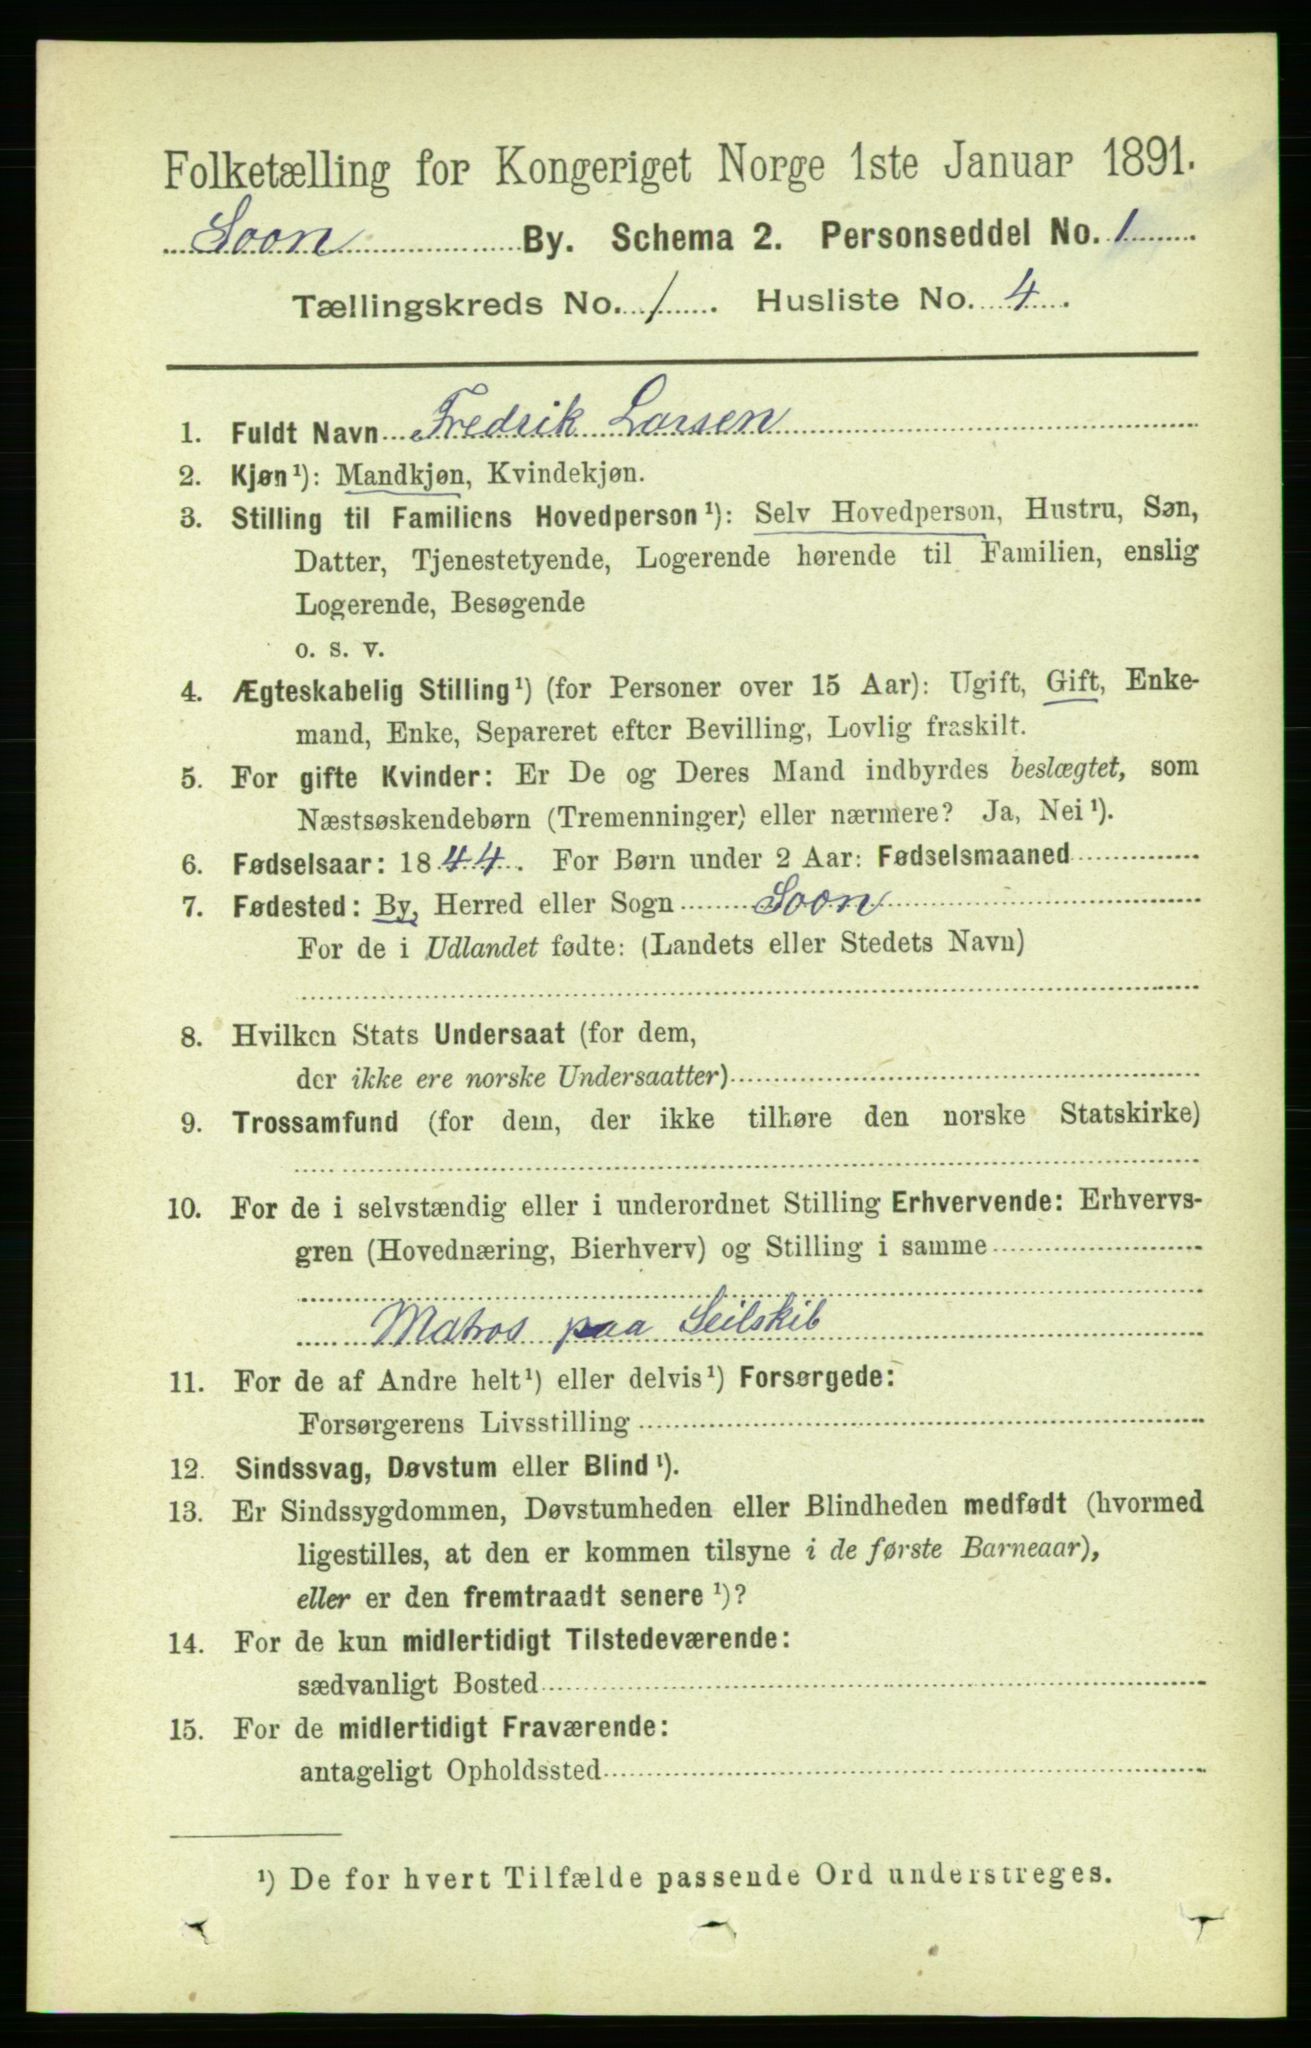 Folketælling for Kongeriget Norge 1ste Januar 1891.
Soon By. Schema 2. Personseddel No. 1
Tællingskreds No. 1. Husliste No. 4.
1. Fuldt Navn Fredrik Larsen
2. Kjøn¹): Mandkjøn, Kvindekjøn.
3. Stilling til Familiens Hovedperson¹): Selv Hovedperson, Hustru, Søn,
Datter, Tjenestetyende, Logerende hørende til Familien, enslig
Logerende, Besøgende
o. s. v.
4. Ægteskabelig Stilling¹) (for Personer over 15 Aar): Ugift, Gift, Enke-
mand, Enke, Separeret efter Bevilling, Lovlig fraskilt.
5. For gifte Kvinder: Er De og Deres Mand indbyrdes beslægtet, som
Næstsøskendebørn (Tremenninger) eller nærmere? Ja, Nei¹).
6. Fødselsaar: 1844. For Børn under 2 Aar: Fødselsmaaned
7. Fødested: By, Herred eller Sogn Soon
For de i Udlandet fødte: (Landets eller Stedets Navn)
8. Hvilken Stats Undersaat (for dem,
der ikke ere norske Undersaatter)
9. Trossamfund (for dem, der ikke tilhøre den norske Statskirke)
10. For de i selvstændig eller i underordnet Stilling Erhvervende: Erhvervs-
gren (Hovednæring, Bierhverv) og Stilling i samme
Matros paa Seilskib
11. For de af Andre helt¹) eller delvis¹) Forsørgede:
Forsørgerens Livsstilling
12. Sindssvag, Døvstum eller Blind¹).
13. Er Sindssygdommen, Døvstumheden eller Blindheden medfødt (hvormed
ligestilles, at den er kommen tilsyne i de første Barneaar),
eller er den fremtraadt senere¹)?
14. For de kun midlertidigt Tilstedeværende:
sædvanligt Bosted
15. For de midlertidigt Fraværende:
antageligt Opholdssted
¹) De for hvert Tilfælde passende Ord understreges.